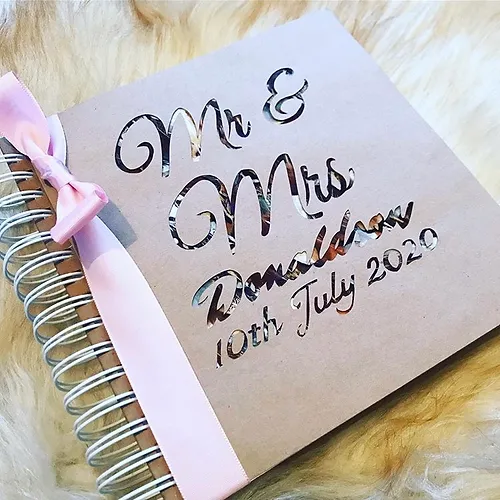 Mr &
Mrs
Donaldson
10th July 2020